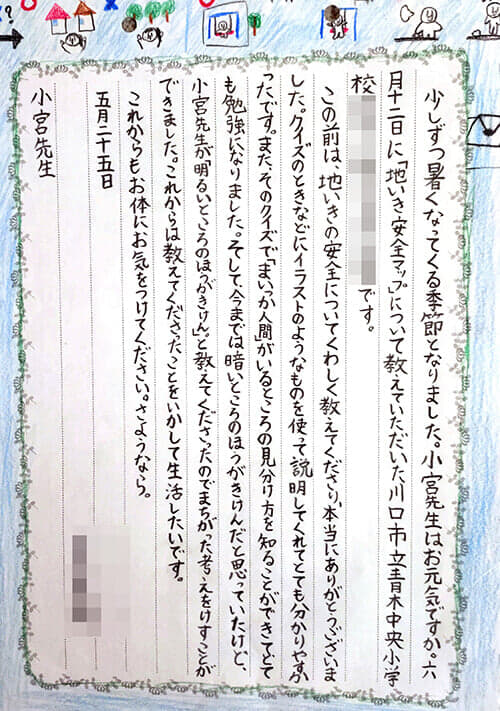 少しずつ暑くなってくる季節となりました。小宮先生はお元気ですか。六
月十二日に「地いき安全マップ」について教えていただいた川口市立青木中央小学
校
です。
この前は、地いきの安全についてくわしく教えてくださり、本当にありがとうございま
した。クイズのときなどにイラストのようなものを使って説明してくれてとても分かりやすか
ったです。また、そのクイズで「まいっか人間」がいるところの見分け方を知ることができてとて
も勉強になりました。そして、今までは暗いところのほうがきけんだと思っていたけど、
小宮先生が「明るいところのほうがきけん」と教えてくださったのでまちがった考えをけすことが
できました。これからは教えてくださったことをいかして生活したいです。
これからもお体にお気をつけてください。さようなら。
五月二十五日
小宮先生